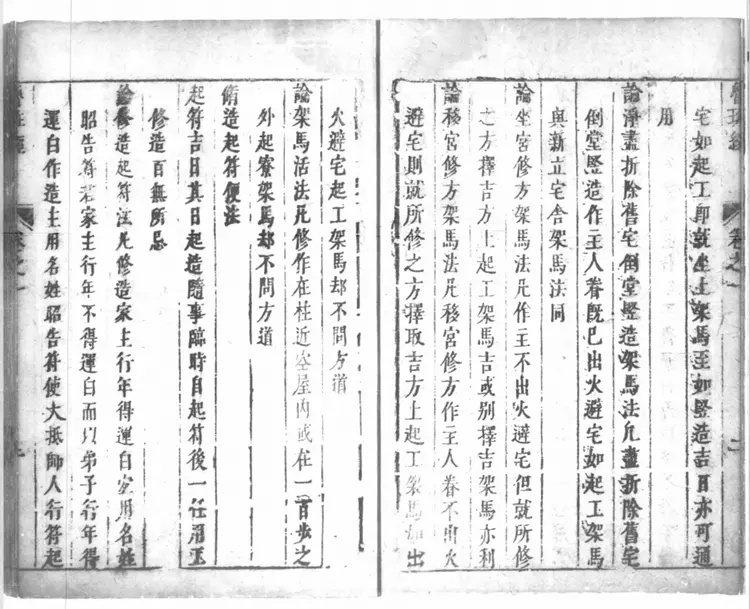 宅如起工即就坐上架馬至如竪造吉日亦可通
用
論淨盡拆除舊宅倒堂竪造架馬法凡盡拆除舊宅
倒堂竪造作主人眷既已出火避宅如起工架馬
與新立宅舍架馬法同
論坐宮修方架馬法凡作主不出火避宅但就所修
之方擇吉方上起工架馬吉或別擇吉架馬亦利
論移宮修方架馬法凡移宮修方作主人眷不出火
避宅則就所修之方擇取吉方上起工架馬如出
火避宅起工架馬却不問方道
論架馬活法凡修作在柱近空屋内或在一百步之
外起寮架馬却不問方道
修造起符便法
起符吉日其日起造隨事臨時自起符後一任用工
修造百無所忌
論修造起符法凡修造家主行年得運白宜用名姓
昭告符若家主行年不得運白而以弟子行年得
運白作造主用名姓昭告符使大抵師人行符起
魯班經
卷之一
二